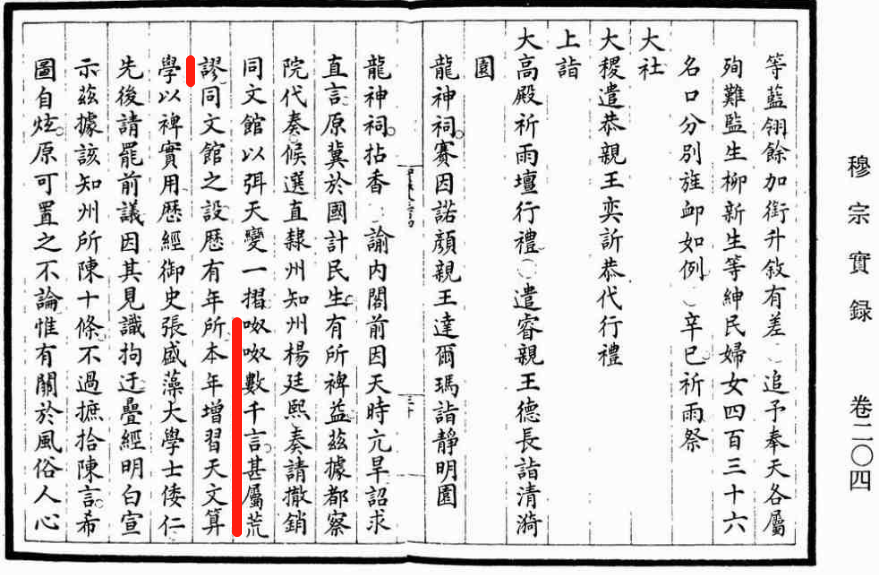 穆宗實録 卷二〇四
等藍翎餘加銜升敘有差○追予奉天各屬
殉難監生柳新生等紳民婦女四百三十六
名口分別旌卹如例○辛巳祈雨祭
大社
大稷遣恭親王奕訢恭代行禮
上詣
大高殿祈雨壇行禮○遣睿親王德長詣清漪
園
龍神祠。賽因諾顏親王達爾瑪詣靜明園
三十
龍神祠。拈香○諭內閣前因天時亢旱詔求
直言原冀於國計民生。有所裨益。茲據都察
院代奏候選直隸州知州楊廷熙奏請撤銷
同文館以弭天變一摺呶呶數千言。甚屬荒
謬同文館之設歷有年所。本年增習天文算
學以裨實用歷經御史張盛藻大學士倭仁
先後請罷前議因其見識拘迂疊經明白宣
示茲據該知州所陳十條。不過摭拾陳言。希
圖自炫。原可置之不論惟有關於風俗人心